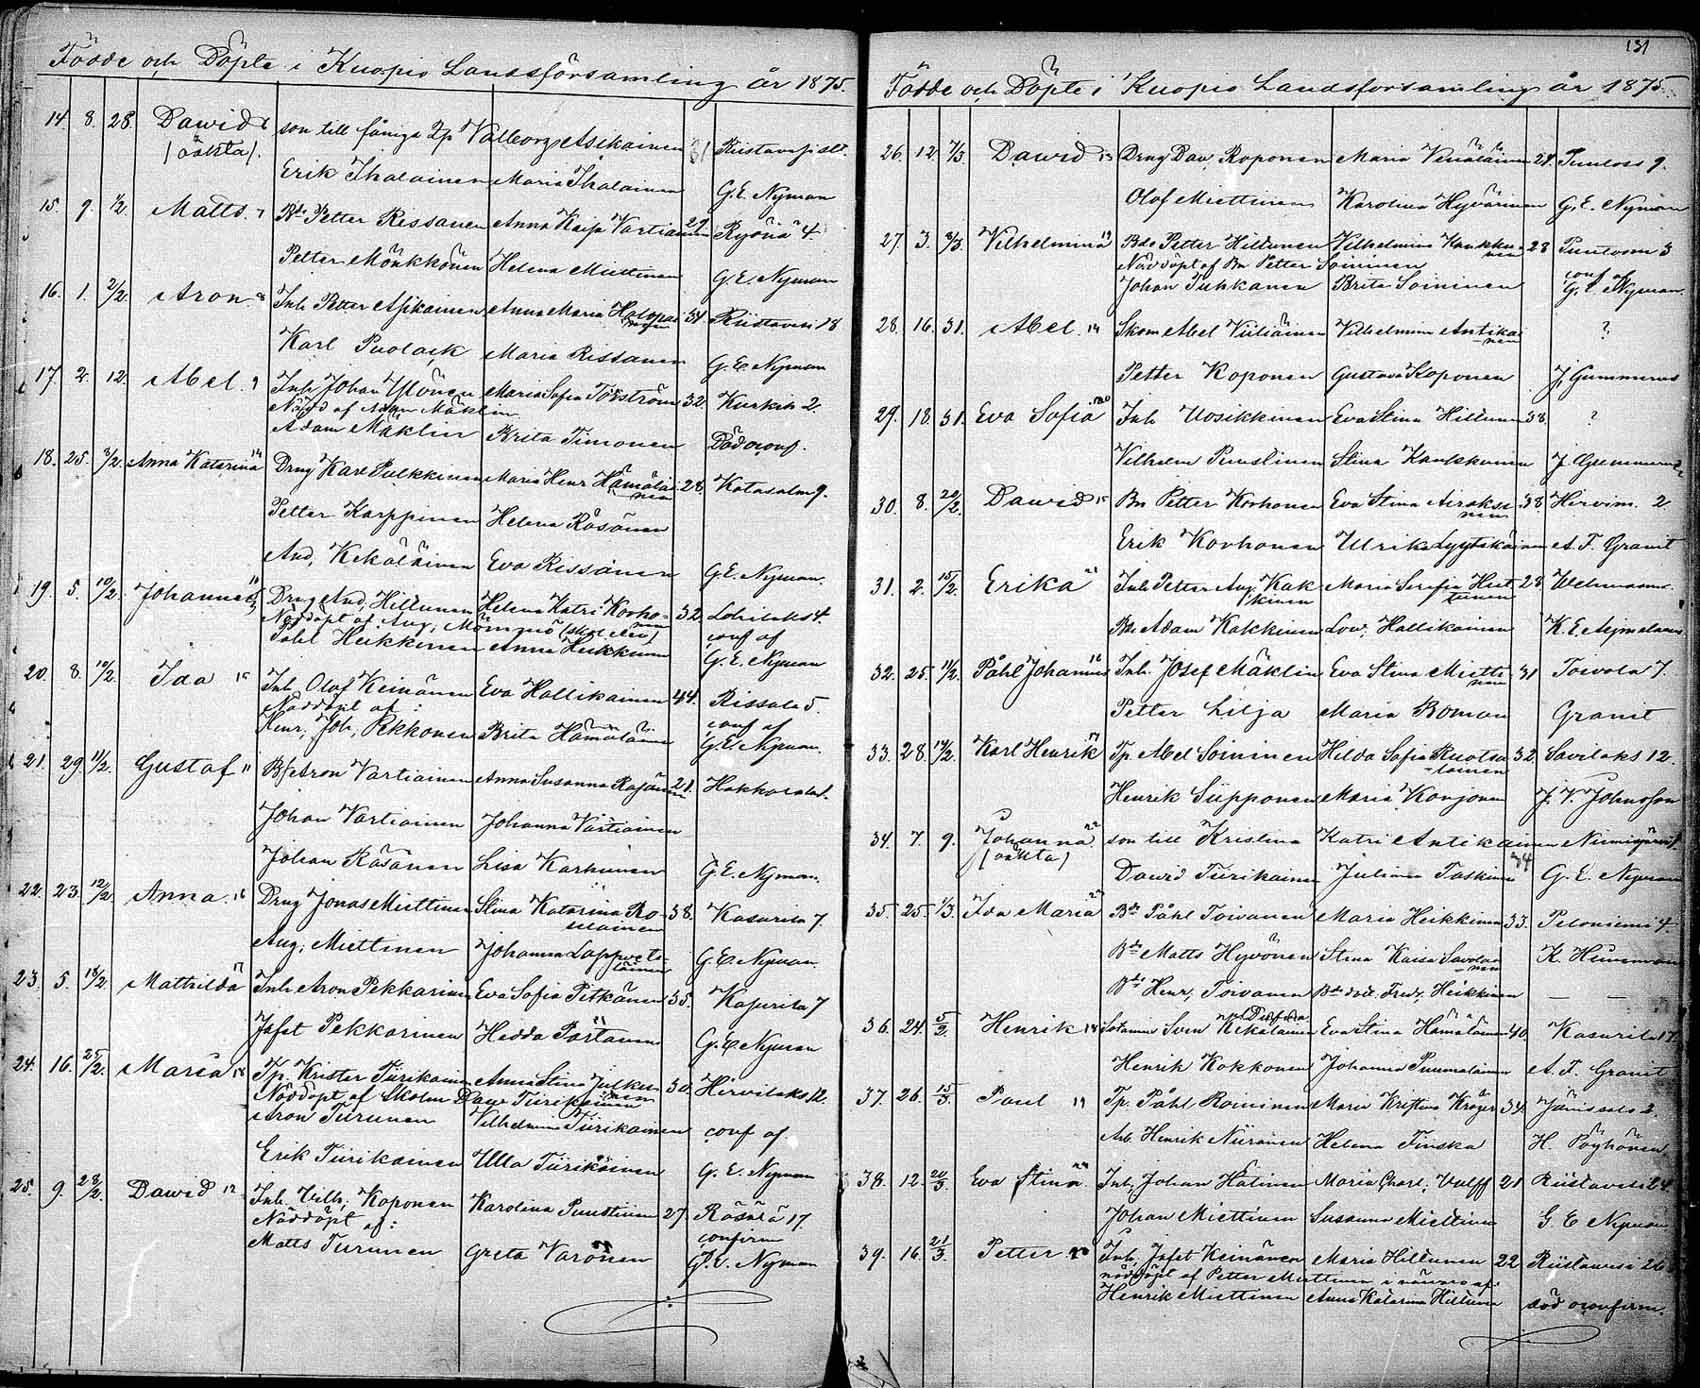 Födde och Döpte i Kuopio Landsförsamling år 1875.
14 8. 28. Dawid son till Valborg Asikainen 31 Riistavesi
(oäkta). Erik Ihalainen Maria Ihalainen G. E. Nyman
15. 9. 1/2. Matts Petter Rissanen Anna Kaisa Vartiainen 29. Ryönä 4.
Petter Mönkkönen Helena Miettinen G. E. Nyman
16. 1. 2/2. Aron Inh Petter Asikainen Anna Maria Holopai 34. Riistavesi 18
nen
Karl Puolack Maria Rissanen G. E. Nyman
17. 2. 12. Abel Inh Johan Ylönen Maria Sofia Törström 32. Kurkih 2.
Nödd af Adam Mäklin
Adam Mäklin Brita Timonen Död oconf.
18. 25. Anna Katarina Drng Karl Pulkkinen Maria Henr Hämäläi 28. Kotasalmi 9.
nen
Petter Karppinen Helena Räsänen
And, Kekäläinen Eva Rissanen G. E. Nyman.
19. 5. 10/2. Johannes Drng And, Hiltunen Helena Katri Korho- 32. Lohilaks 4.
nen
Nöddöpt af Aug,
Påhl Heikkinen Anna Heikkinen conf af
G. E. Nyman
20. 8. 10/2. Ida Inh. Olof Keinänen Eva Hallikainen 44. Rissala 5.
Nöddöpt af:
Henr, Joh, Pekkonen Brita Hämäläinen conf af
G. E. Nyman.
21. 29. 11/2. Gustaf Aron Vartiainen Anna Susanna Räsänen 21.
Johan Vartiainen Johanna Vartiainen
Johan Räsänen Lisa Karhunen G. E. Nyman.
22. 23. 12/2. Anna Drng Jonas Miettinen Stina Katarina Ro- 38. Kasurila 7.
Aug, Miettinen Johanna Lappvete- G. E. Nyman.
läinen
23. 5. 18/2. Mathilda Inh Aron Pekkarinen Eva Sofia Pitkänen 35. Kasurila 7
Jafet Pekkarinen Hedda Partanen G. E. Nyman
24. 16. 25/2. Maria Tp. Krister Tiirikainen Anna Stina Julku 30. Hirvilaks 12.
nen
Nöddöpt af Skolm Dav Tiirikainen
Aron Turunen Vilhelmina Tiirikainen conf af
Erik Tiirikainen Ulla Tiirikainen G. E. Nyman
25. 9. 28/2. Dawid Inh. Vilh, Koponen Karolina Puustinen 27 Räsälä 17
Nöddöpt af: confirm
Matts Turunen Greta Varonen G. E. Nyman
131
Födde och Döpte i Kuopio Landsförsamling år 1875.
26. 12. 7/3. Dawid Drng Dav, Roponen Maria Venäläinen 24. Puutoss 9.
Olof Miettinen Karolina Hyvärinen G. E. Nyman
27. 3. 8/3. Vilhelmina Petter Hiltunen Vilhelmina Kaukku- 28 Puutossm 3
nen
Nöddöpt af Bn Petter Soininen
Johan Tuhkanen Brita Soininen conf af
G. E. Nyman
28. 16. 31. Abel Skom Abel Vitiäinen Vilhelmina Antikai ?
nen
Petter Koponen Gustava Koponen J, Gummerus
29. 18. 31. Eva Sofia Inh Uosikkinen Eva Stina Hiltunen 38. ?
Vilhelm Puustinen Stina Kaukkunen J. Gummerus
30. 8. 20/2. Dawid Bn Petter Korhonen Eva Stina Airaksi 38 Hirvim. 2
nen
Erik Korhonen Ulrika Lyytikäinen A. F. Granit
31. 2. 15/2. Erika Inh Petter Aug, Kak Maria Serafia Hut 28
kinen tunen
Adam Kakkinen Lov, Hallikainen K. E. Aejmelaeus
32. 25. 11/2. Påhl Johannes Inh. Josef Mäklin Eva Stina Mietti 31 Toivola 7.
nen
Petter Lilja Maria Boman Granit
33. 28. 14/2. Karl Henrik Tp. Abel Soininen Hilda Sofia Ruotsa 32 Savilaks 12.
lainen
Henrik Siipponen Maria Konjonen J. V. Johnsson
34. 7. 9. Johanna son till Kristina Katri Antikainen 34
(oäkta) Dawid Tiirikainen Julina Taskinen G. E. Nyman
35. 25. 1/3. Ida Maria Påhl Toivanen Maria Heikkinen 33. Peloniemi 4.
Matts Hyvönen Stina Kaisa Savolai
nen
Henr, Toivanen Fredr. Heikkinen — —
36. 24. 5/2. Henrik Sven Kekäläinen Eva Stina Hämäläinen 40. Kasurila 17.
Henrik Kokkonen Johanna Puumalainen A. F. Granit
37. 26. 15/3. Paul Tp. Påhl Roininen Maria Kristina Kröger 34. Jänissalo 2.
Henrik Niiranen Helena Finska H. Pöyhönen
38. 12. 20/3. Eva Stina Inh, Johan Hatinen Maria Charl, Vulff 21 Riistavesi 24.
Johan Miettinen Susanna Miettinen G. E Nyman
39. 16. 21/3. Petter Inh, Jafet Keinänen Maria Hiltunen 22 Riistavesi 26
nöddöpt af Petter Miettinen i närvaro af
Henrik Miettinen Anna Katarina Hiltunen död oconfirm.